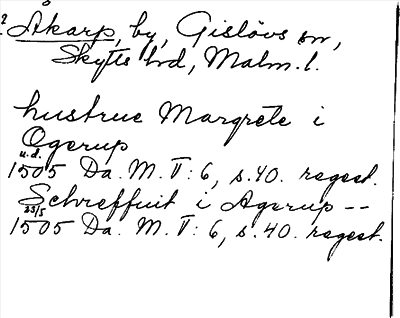 ? Åkarp, by, Gislövs sn,
Skytts hd, Malm. l.
hustrue Margrete i
Ogerup
u.d.
1505 Da. M. V: 6, s. 40. regest.
Schreffuit i Agerup --
23/5
1505 Da. M. V: 6, s. 40. regest.